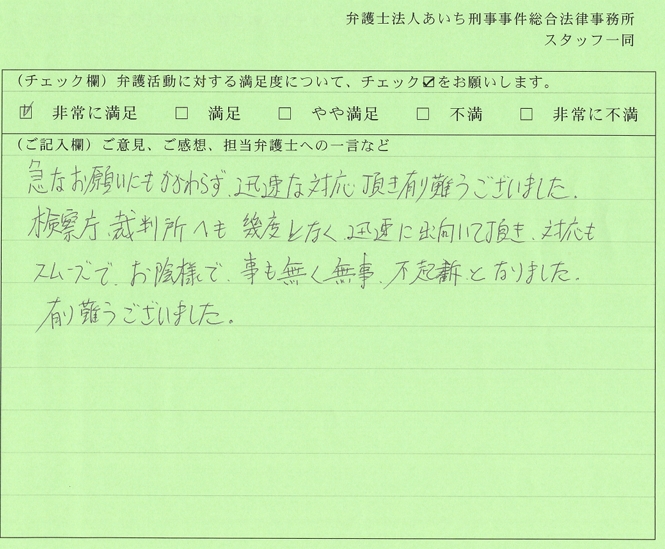 弁護士法人あいち刑事事件総合法律事務所
スタッフ一同
(チェック欄)弁護活動に対する満足度について、チェック☑をお願いします。
☑ 非常に満足 □ 満足 □ やや満足 □ 不満 □ 非常に不満
(ご記入欄)ご意見、ご感想、担当弁護士への一言など
急なお願いにもかかわらず、迅速な対応頂き有難うございました。
検察庁、裁判所へも幾度となく迅速に出向いて頂き、対応も
スムーズで、お陰様で、事も無く無事、不起訴となりました。
有り難うございました。